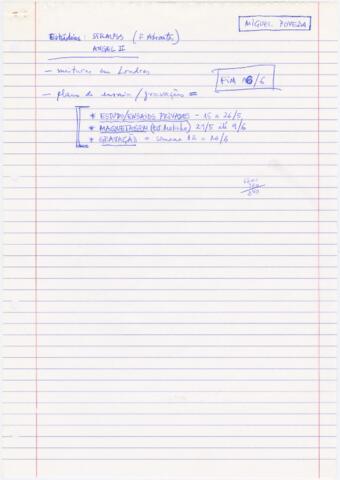 MIGUEL POVEDA
Estúdios: STRAUSS (F. Abrantes)
ANGEL II
- misturas em Londres
FIM 16/6
- plano de ensaio/gravações =
* ESTUDO/ENSAIOS PRIVADOS - 15 a 26/5
* MAQUETAGEM 29/5 até 9/6
* GRAVAÇÃO - semana 12 - 16/6